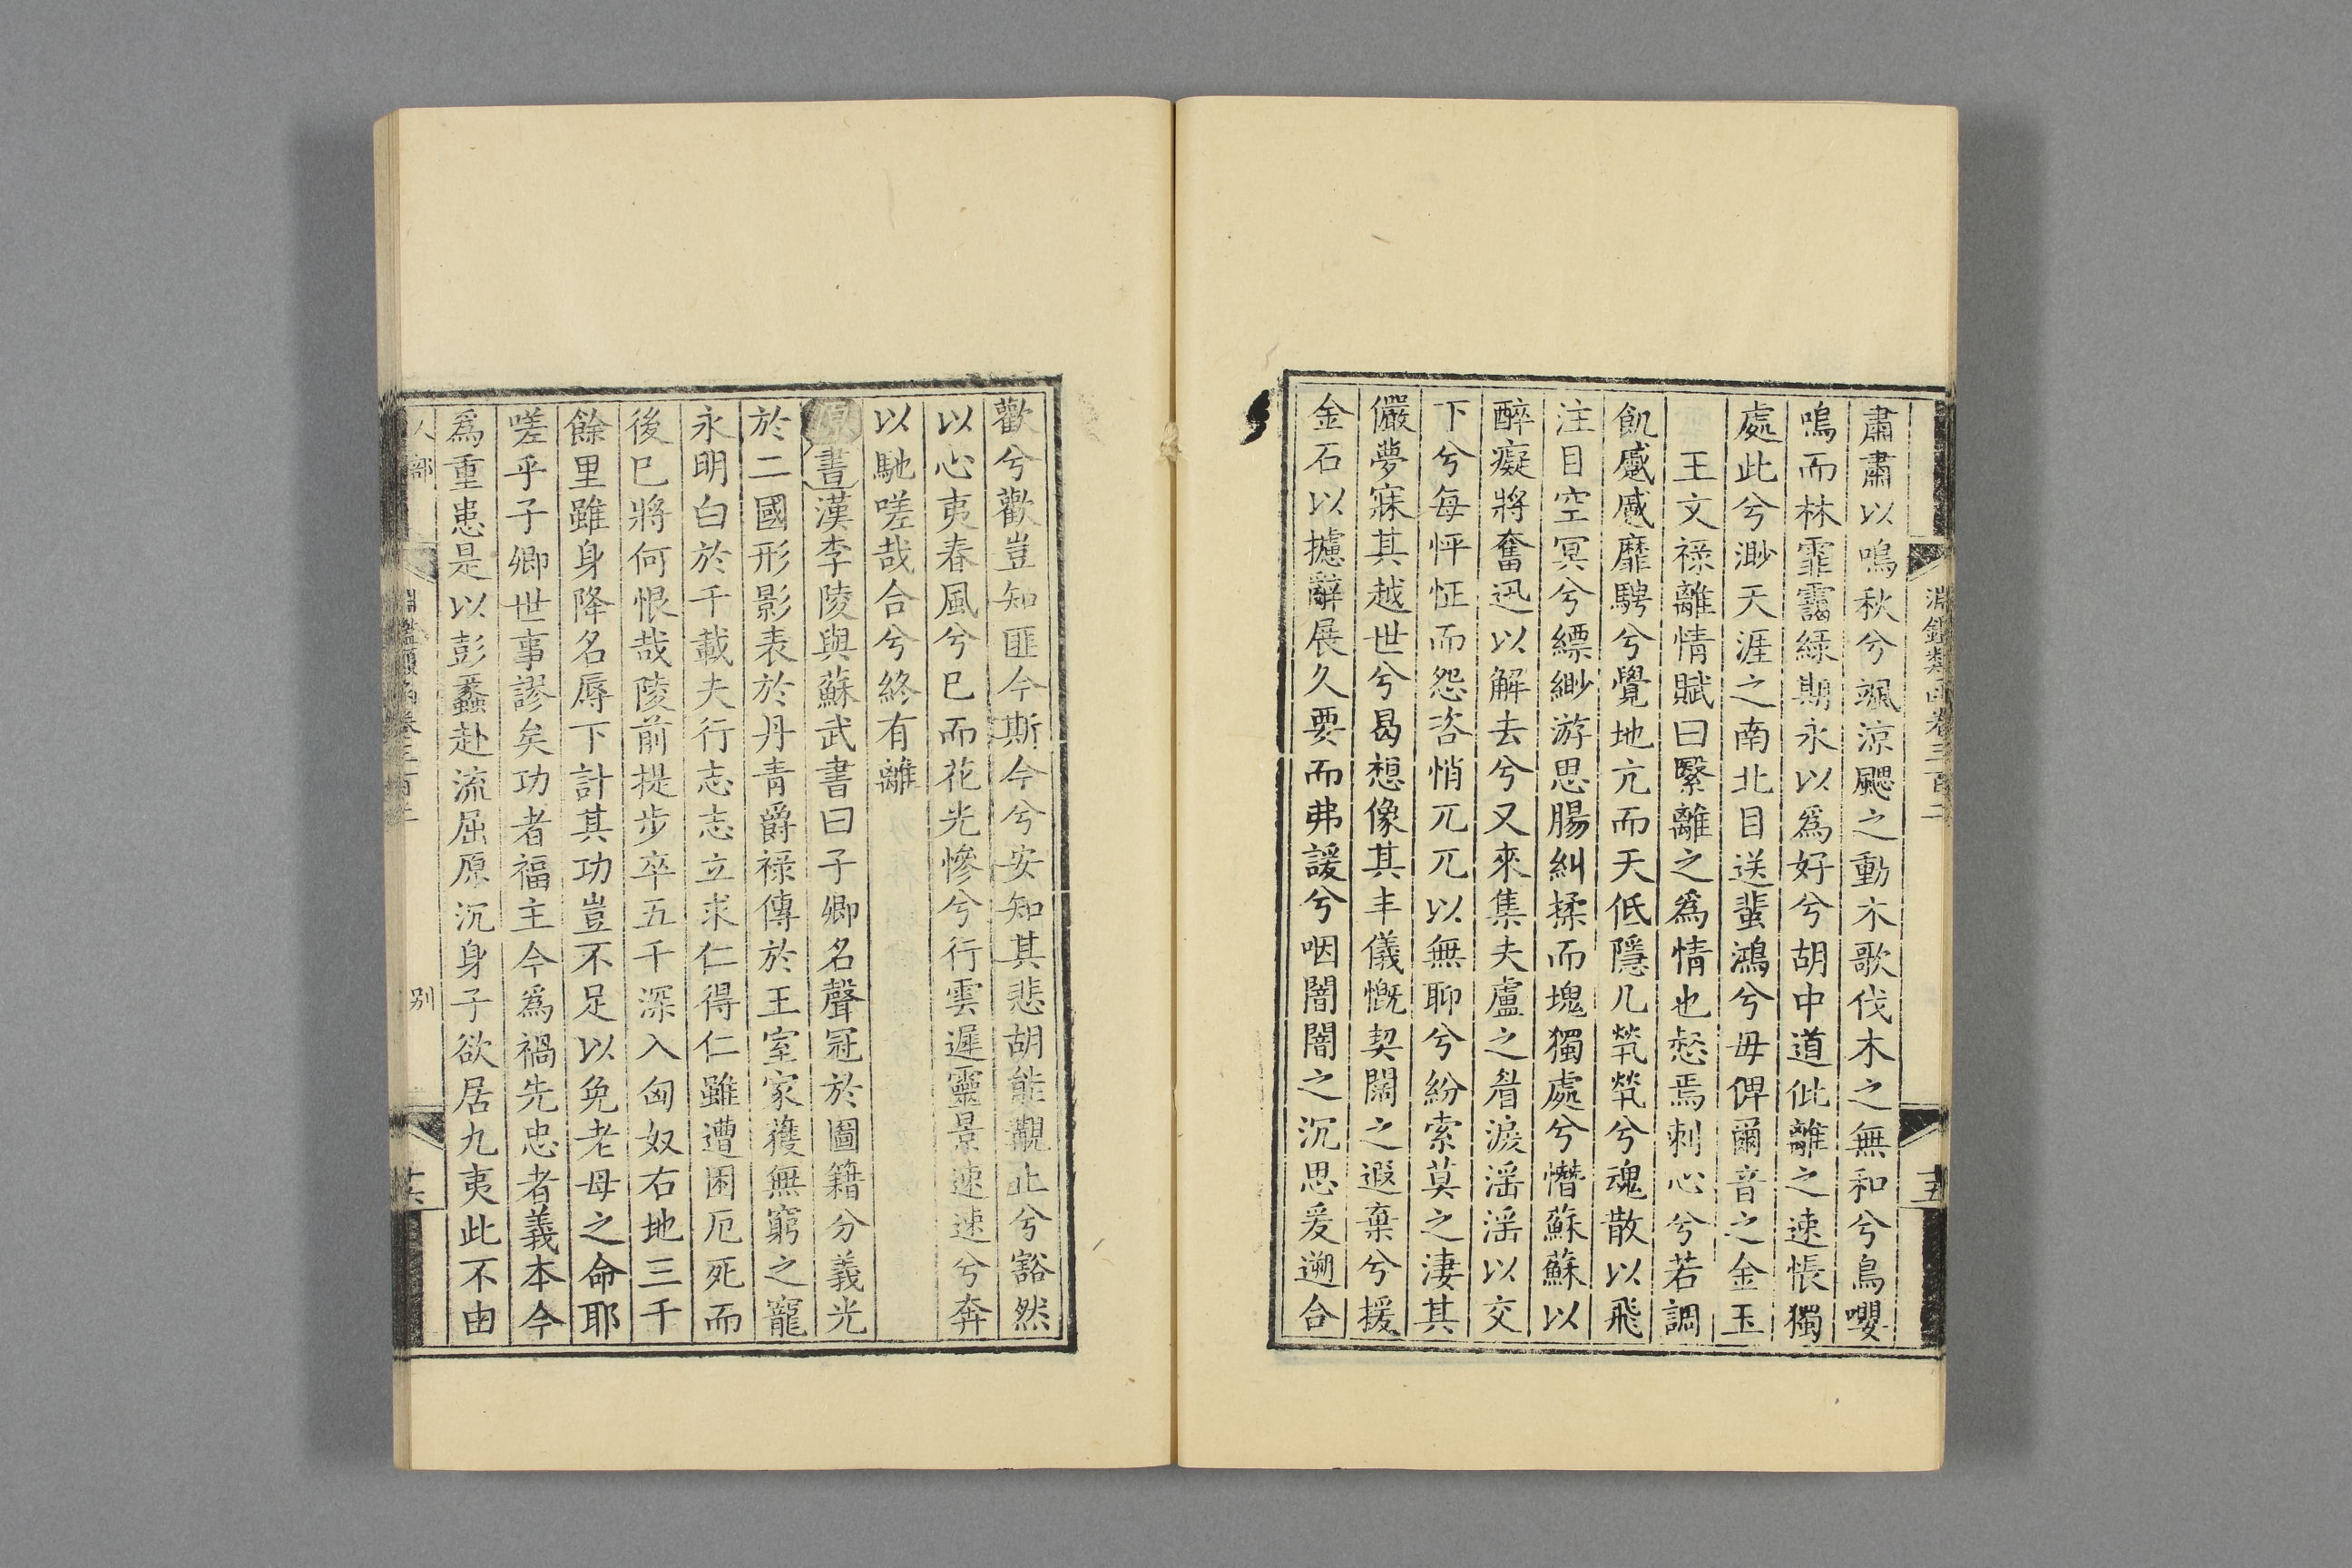 淵鑑類函卷三百二
十五
肅肅以鳴秋兮颯涼飈之動木歌伐木之無和兮鳥嚶
鳴而林霏靄綠期永以爲好兮胡中道仳離之速悵獨
處此兮渺天涯之南北目送蜚鴻兮毋俾爾音之金玉
王文祿離情賦曰繄離之爲情也惄焉刺心兮若調
飢慼慼靡騁兮覺地亢而天低隱几煢煢兮魂散以飛
注目空冥兮縹緲游思腸糾揉而塊獨處兮憯蘇蘇以
醉癡將奮迅以解去兮又來集夫廬之眘淚滛滛以交
下兮每怦怔而怨咨悄兀兀以無聊兮紛索莫之淒其
儼夢寐其越世兮曷想像其丰儀慨契闊之遐棄兮援
金石以攄辭展久要而弗諼兮咽闇闇之沉思爰遡合
歡兮歡豈知匪今斯今兮安知其悲胡能觀止兮豁然
以心夷春風兮巳而花光慘兮行雲遲靈景速速兮奔
以馳嗟哉合兮終有離
原書漢李陵與蘇武書曰子卿名聲冠於圖籍分義光
於二國形影表於丹青爵祿傳於王室家獲無窮之寵
永明白於千載夫行志志立求仁得仁雖遭困厄死而
後巳將何恨哉陵前提步卒五千深入匈奴右地三千
餘里雖身降名辱下計其功豈不足以免老母之命耶
嗟乎子卿世事謬矣功者福主今爲禍先忠者義本今
爲重患是以彭蠡赴流屈原沉身子欲居九夷此不由
人部
淵鑑類函卷三百二
別
十六